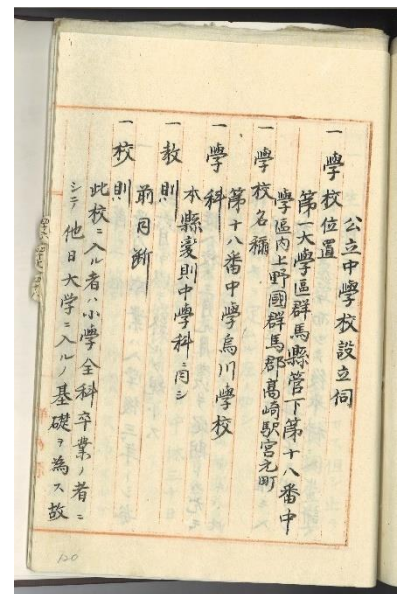 公立中學校設立伺
一學校位置
第一大學區群馬縣管下第十八番中
學區内上野國群馬郡髙崎駅宮元町
一學校名稱
第十八番中學烏川學校
一學科
本縣変則中學科ニ同シ
一教則
前同断
一校則
此校ニ入ル者ハ小學全科卒業ノ者ニ
シテ他日大学ニ入ルノ基礎ヲ為ス故
120